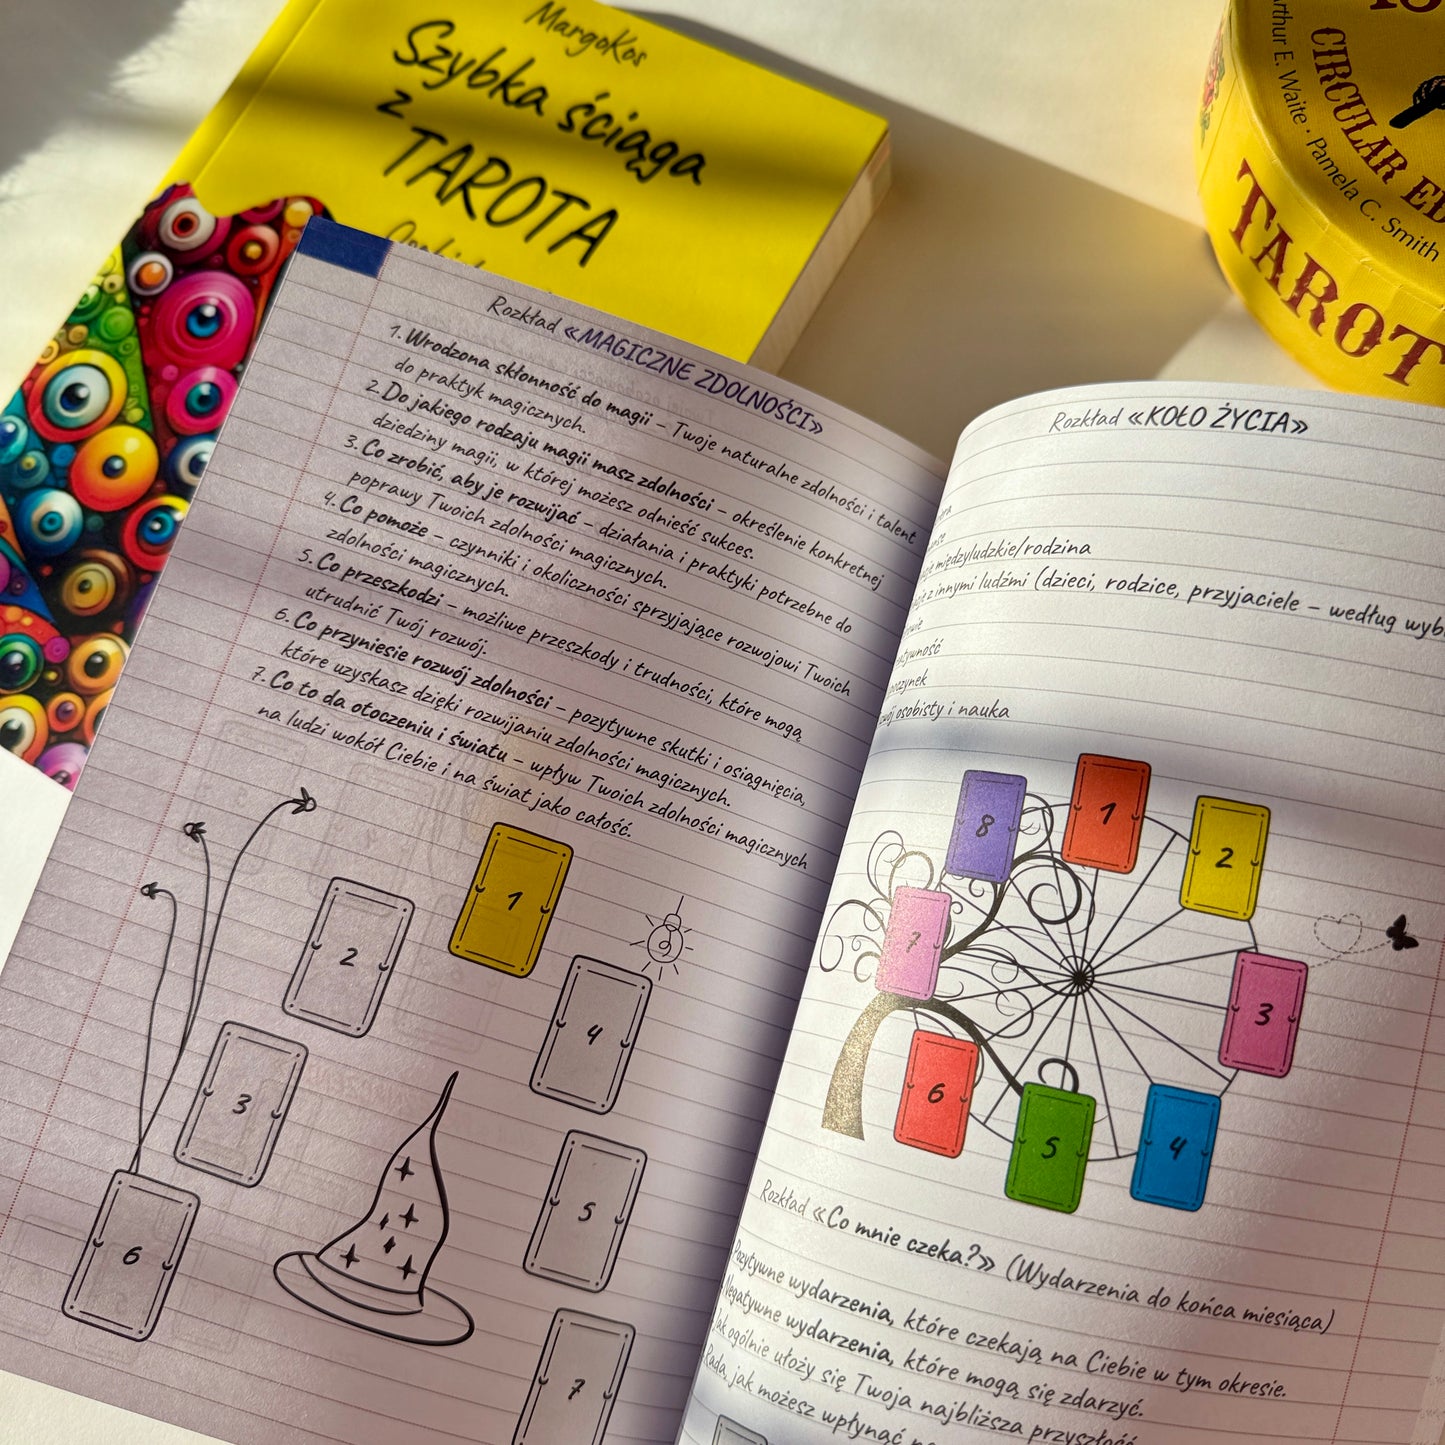 MargoKos
Szybka ściąga
z
TAROTA
Arthur E. Waite · Pamela C. Smith
CIRCULAR ED
TAROT
Rozkład «MAGICZNE ZDOLNOŚCI»
1. Wrodzona skłonność do magii – Twoje naturalne zdolności i talent
do praktyk magicznych.
2. Do jakiego rodzaju magii masz zdolności – określenie konkretnej
dziedziny magii, w której możesz odnieść sukces.
3. Co zrobić, aby je rozwijać – działania i praktyki potrzebne do
poprawy Twoich zdolności magicznych.
4. Co pomoże – czynniki i okoliczności sprzyjające rozwojowi Twoich
zdolności magicznych.
5. Co przeszkodzi – możliwe przeszkody i trudności, które mogą
utrudnić Twój rozwój.
6. Co przyniesie rozwój zdolności – pozytywne skutki i osiągnięcia,
które uzyskasz dzięki rozwijaniu zdolności magicznych.
7. Co to da otoczeniu i światu – wpływ Twoich zdolności magicznych
na ludzi wokół Ciebie i na świat jako całość.
1
2
3
4
5
6
7
Rozkład «KOŁO ŻYCIA»
międzyludzkie/rodzina
z innymi ludźmi (dzieci, rodzice, przyjaciele – według wyb
osobisty i nauka
8
1
2
7
3
6
5
4
Rozkład «Co mnie czeka?» (Wydarzenia do końca miesiąca)
Pozytywne wydarzenia, które czekają na Ciebie w tym okresie.
Negatywne wydarzenia, które mogą się zdarzyć.
Jak ogólnie ułoży się Twoja najbliższa przyszłość
Rada, jak możesz wpłynąć